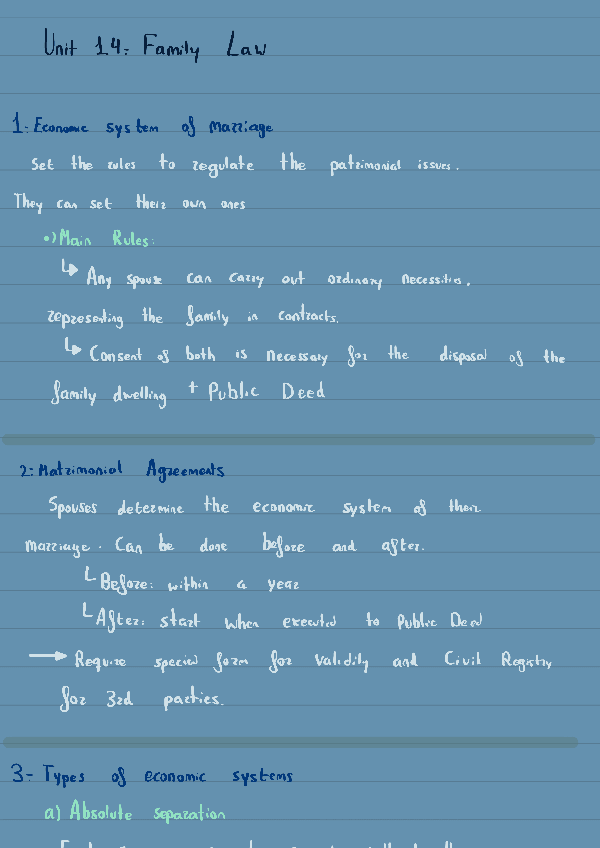 Unit 14: Family Law
1. Economic system of marriage
Set the rules to regulate the patrimonial issues.
They can set their own ones
•) Main Rules:
↳ Any spouse can carry out ordinary necessities.
representing the family in contracts.
↳ Consent of both is necessary for the disposal of the
family dwelling + Public Deed
2: Matrimonial Agreements
Spouses determine the economic system of their
marriage. Can be done before and after.
└ Before: within a year
└ After: start when executed to Public Deed
→ Require special form for validity and Civil Registry
for 3rd parties.
3- Types of economic systems
a) Absolute separation